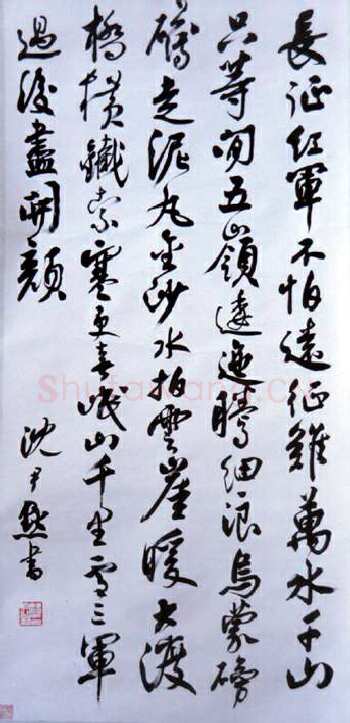 長征紅軍不怕遠征難萬水千山
只等間五嶺逶迤騰細浪烏蒙磅
礴走泥丸金沙水拍雲崖暖大渡
橋橫鐵索寒更喜岷山千里雪三軍
過後盡開顏
沈尹默書
Shufawang.Cn